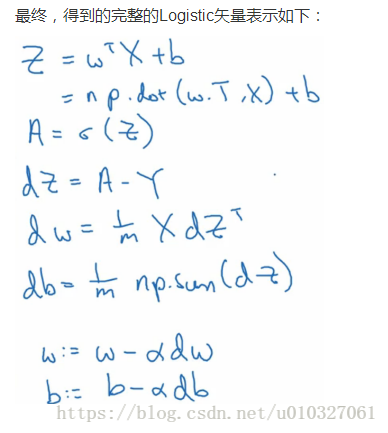 最终，得到的完整的Logistic矢量表示如下：
Z = wᵀX + b
= np.dot(w.T, X) + b
A = σ(Z)
dZ = A - Y
dw = 1/m X dZᵀ
db = 1/m np.sum(dZ)
w := w - αdw
b := b - αdb
https://blog.csdn.net/u010327061